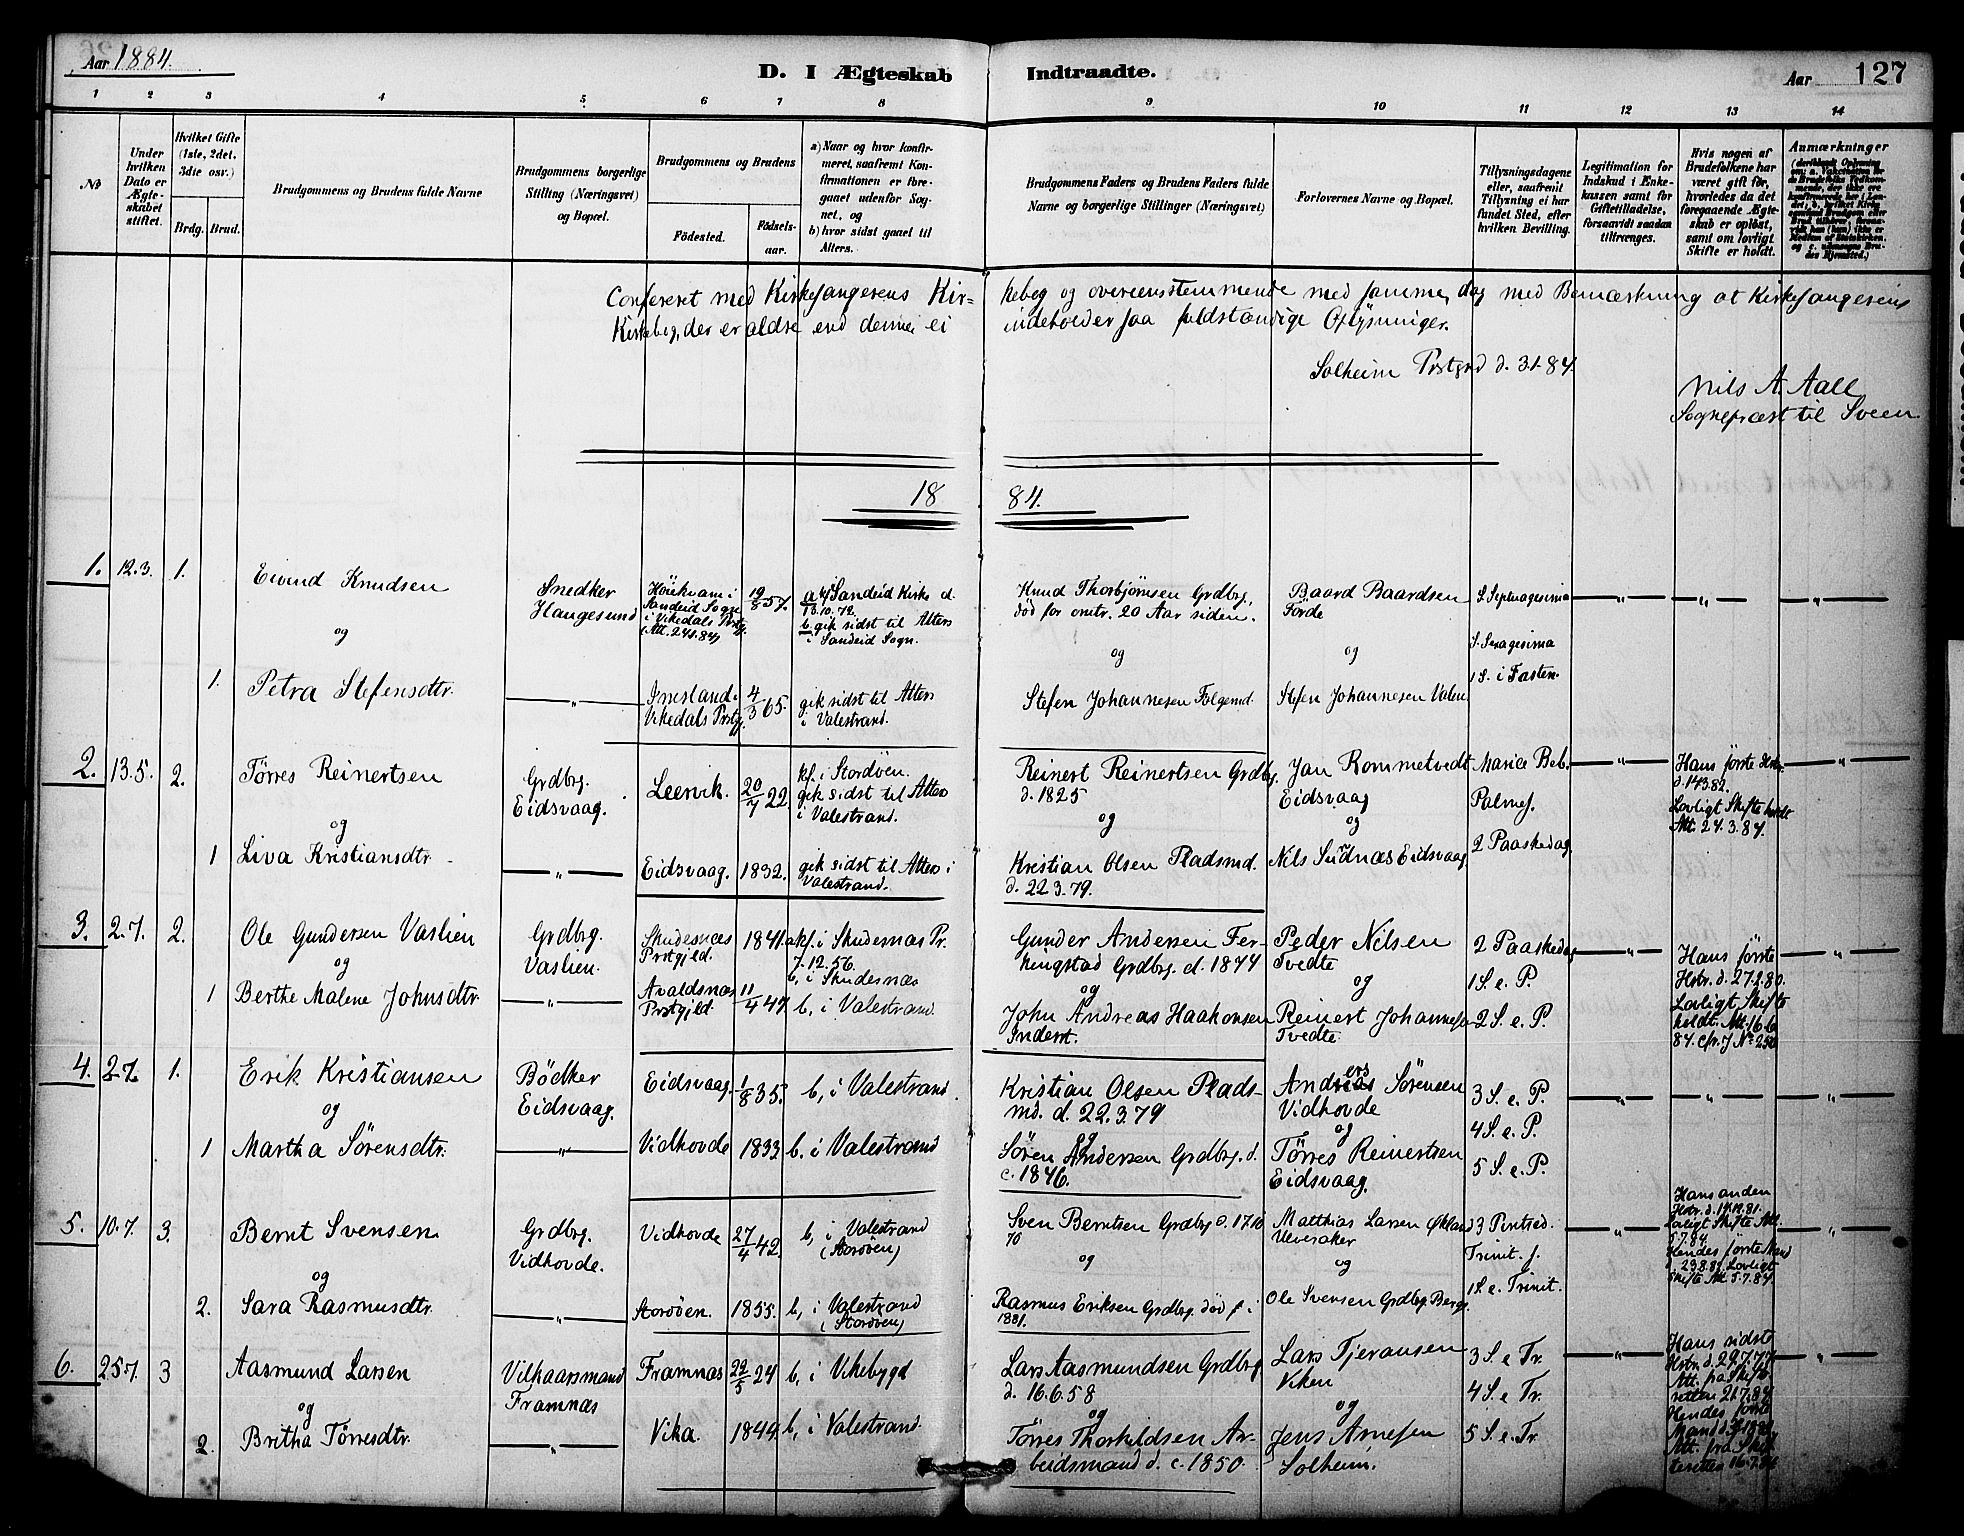 Aar 1884.
D. I Ægteskab Indtraadte.
Aar 127
1 2 3 4 5 6 7 8 9 10 11 12 13 14
No
Under hvilken Dato er Ægteskabet stiftet.
Hvilket Gifte (1ste, 2det, 3die osv.)
Brdg. Brud.
Brudgommens og Brudens fulde Navne
Brudgommens borgerlige Stilling (Næringsvei) og Bopæl.
Brudgommens og Brudens
Fødested.
Fødselsaar.
a) Naar og hvor konfirmeret, saafremt Konfirmationen er foregaaet udenfor Sognet, og
b) hvor sidst gaaet til Alters.
Brudgommens Faders og Brudens Faders fulde Navne og borgerlige Stillinger (Næringsvei)
Forlovernes Navne og Bopæl.
Tillysningsdagene eller, saafremt Tillysning ei har fundet Sted, efter hvilken Bevilling.
Legitimation for Indskud i Enkekassen samt for Giftetilladelse, forsaavidt saadan tiltrænges.
Hvis nogen af Brudefolkene har været gift før, hvorledes da det foregaaende Ægteskab er opløst, samt om lovligt Skifte er holdt.
Anmærkninger
Confereret med Kirkesangerens Kirkebog og overeensstemmende med samme, dog med Bemærkning at Kirkesangerens
Kirkebog, der er ældre end denne ei indeholder saa fuldstændige Oplysninger.
Solheim Prstgrd d. 3.1.84.
Nils A. Aall
Sognepræst til Sveen.
1884.
1. 12.3. 1.
Eivind Knudsen
Snedker
Haugesund
Sandeid Sogn
i Vikedals Prstg.
19/8 57.
a, kf. i Sandeid Kirke d.
13.10.72.
b, gik sidst til Alters
i Sandeid Sogn.
Knud Thorbjørnsen Grdbrg.
død for omtr. 20 Aar siden.
Baard Baardsen
Förde
S. Septuagesima
S. Sexagesima
1 S. i Fasten.
" " "
og
1. Petra Stefensdtr.
"
Vikedals Prstg.
4/3 65.
gik sidst til Alters
i Valestrand.
og
Stefen Johannesen Følgemd.
og
Stefen Johannesen Valen
2. 13.5. 2.
Törres Reinertsen
Grdbrg.
Eidsvaag.
Leervik.
20/7 22
kf. i Stordöen.
gik sidst til Alters
i Valestrand.
Reinert Reinertsen Grdbrg.
d. 1825
Jan Rommetvedt
Eidsvaag
Mariæ Beb.
Palmes.
2 Paaskedag
"
Hans første Hstr.
d. 14.3.82.
Lovligt Skifte holdt
Att. 24.3.84.
"
og
1 Liva Kristiansdtr.
"
Eidsvaag. 1832.
gik sidst til Alters i
Valestrand.
og
Kristian Olsen Pladsmd.
d. 22.3.79.
og
Nils Sudnæs Eidsvaag
3. 2.7. 2.
Ole Gundersen Vaslien
Grdbrg.
Vaslien.
Skudesnæs
Prstgjld.
1841.
a kf. i Skudesnæs Pr.
7.12.56.
b, i Skudesnæs
Gunder Andersen Ferkingstad Grdbrg. d. 1844
Peder Nilsen
Tvedte
2 Paaskedag
1 S. e. P.
2 S. e. P.
"
Hans første
Hstr. d. 27.2.80.
Lovligt Skifte
holdt. Att. 16.6
84. cfr. J No 250
"
og
1 Berthe Malene Johnsdtr.
"
Avaldsnæs
Prstgjld.
11/4 47
b, i Valestrand.
og
John Andreas Haakonsen
Inderst.
og
Reinert Johannesen
Tvedte
4. 2.7. 1.
Erik Kristiansen
Bödker
Eidsvaag.
Eidsvaag
1/8 35.
b, i Valestrand.
Kristian Olsen Pladsmd. d. 22.3.79
Anders Sörensen
Vidhovde
3 S. e. P.
4 S. e. P.
5 S. e. P.
" " "
og
1 Martha Sörensdtr.
"
Vidhovde 1833
b. i Valestrand
og
Sören Andersen Grdbrg. d.
c. 1846.
og
Törres Reinertsen
Eidsvaag.
5. 10.7. 3.
Bernt Svensen
Grdbrg.
Vidhovde.
Vidhovde
27/4 42.
b, i Valestrand
(Storöen)
Sven Berntsen Grdbrg d. 17.10
70
Matthias Larsen
3 Pintsed.
Trinit. f.
1 S. e. Trinit.
"
Hans anden
Lovligt Skifte Att.
5.7.84.
Hendes første Mand
Lovligt
Skifte Att 5.7.84.
"
og
2. Sara Rasmusdtr.
"
Storöen. 1855.
b, i Valestrand
(Storöen)
og
Rasmus Eriksen Grdbrg. død f i
1881.
og
Ole Svensen Grdbrg. Berge
6. 25.7. 3
Aasmund Larsen
Vilkaarsmand
Framnæs
Framnæs
22/5 24
b, i Vikebygd
Lars Aasmundsen Grdbrg
d. 16.6.58
Lars Tjeransen
Viken
3 S. e Tr.
4 S. e Tr.
5 S. e. Tr.
"
Hans sidste
Hstr. d. 29.7.77.
Att. fra Skifteretten 21.7.84
Hendes første
Att. fra Skifteretten 16.7.84
"
og
2. Britha Törresdtr.
"
Vika. 1844.
b, i Valestrand.
og
Törres Thorkildsen Arbeidsmand d. c. 1850.
og
Jens Arnesen
Solheim.